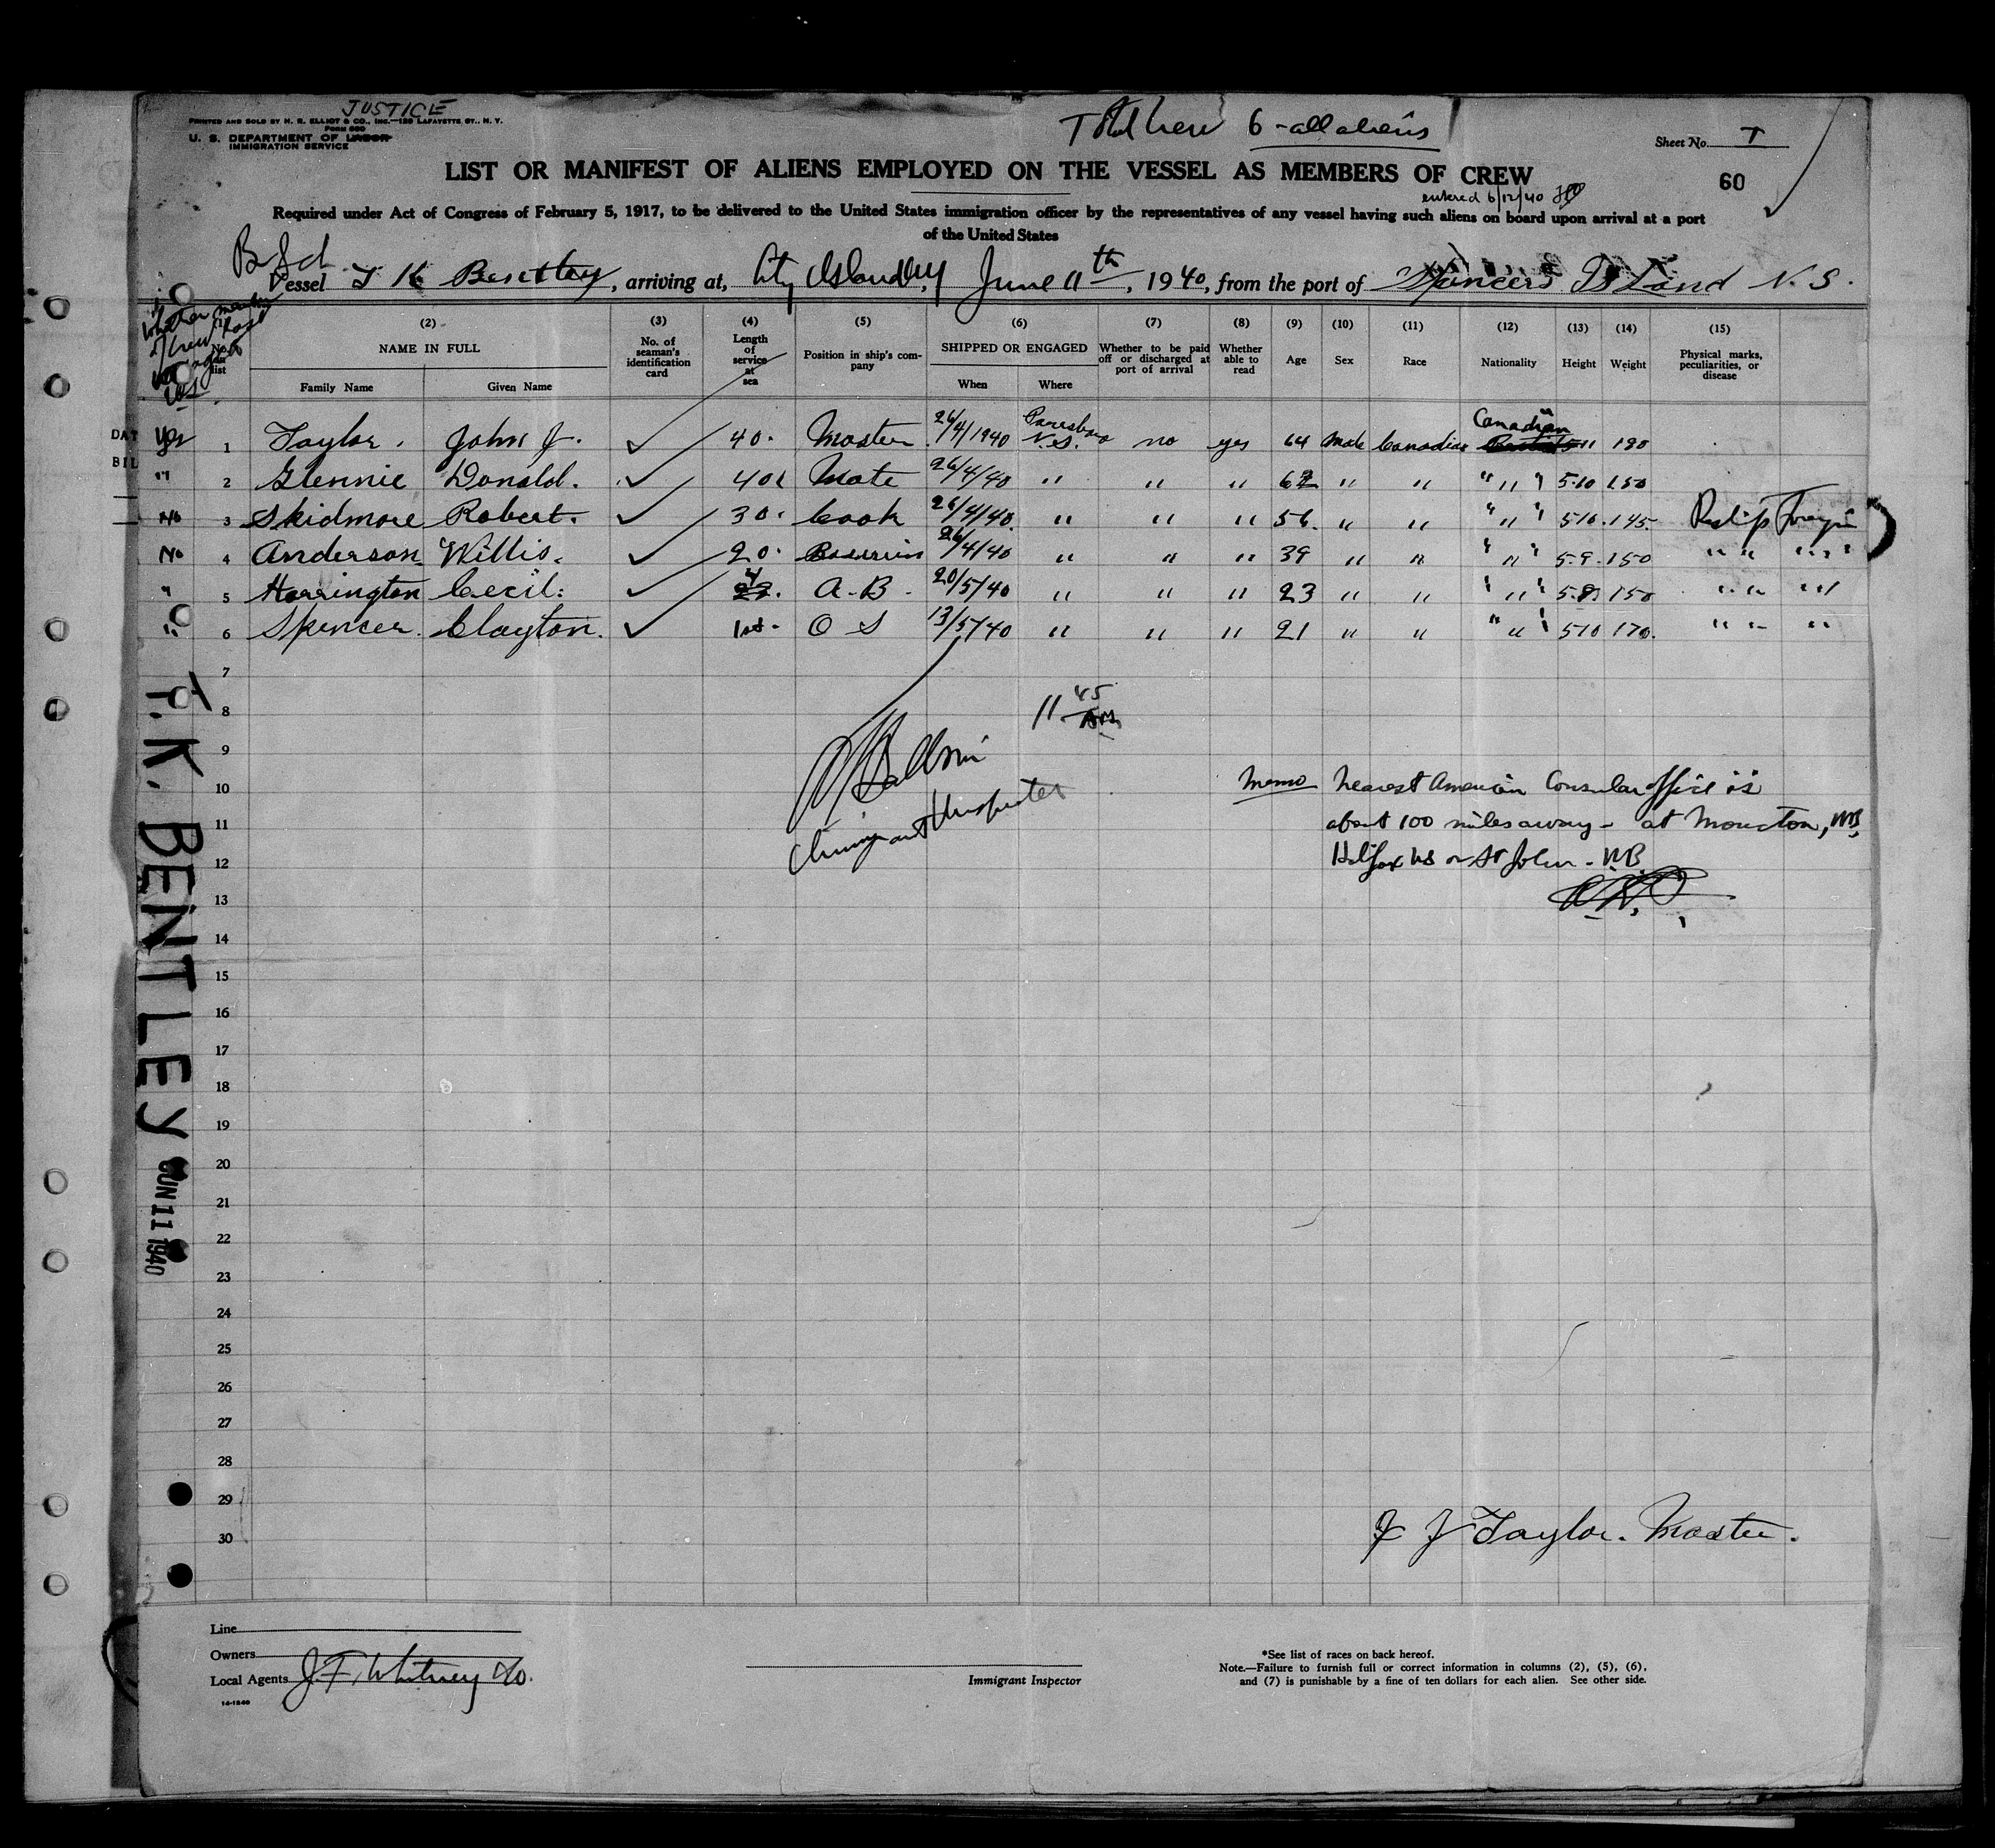 JUSTICE
PRINTED AND SOLD BY H. R. ELLIOT & CO., INC.—129 LAFAYETTE ST., N. Y.
Form 680
U. S. DEPARTMENT OF LABOR
IMMIGRATION SERVICE
Total crew 6 - all aliens
Sheet No. 1
LIST OR MANIFEST OF ALIENS EMPLOYED ON THE VESSEL AS MEMBERS OF CREW
60
entered 6/12/40
Required under Act of Congress of February 5, 1917, to be delivered to the United States immigration officer by the representatives of any vessel having such aliens on board upon arrival at a port
of the United States
Br Sch
Vessel T K Bentley, arriving at, City Island NY June 11th, 1940, from the port of Spencers Island N.S.
Whether member of crew last
(1) No. on list (2) NAME IN FULL Family Name Given Name (3) No. of seaman's identification card (4) Length of service at sea (5) Position in ship's company (6) SHIPPED OR ENGAGED When Where (7) Whether to be paid off or discharged at port of arrival (8) Whether able to read (9) Age (10) Sex (11) Race (12) Nationality (13) Height (14) Weight (15) Physical marks, peculiarities, or disease
yes 1 Taylor. John J. ✓ 40. Master 26/4/1940 Parrsboro N.S. no yes 64 male Canadian Canadian 5 11 190
" 2 Glennie Donald. ✓ 40 Mate 26/4/40 " " " 62 " " " " " 5.10 150
No 3 Skidmore Robert. ✓ 30. Cook 26/4/40. " " " 56. " " " " " 510. 145
No 4 Anderson Willis. ✓ 20. 26/4/40 " " " 39 " " " " " 5.9. 150 " " " "
" 5 Harrington Cecil. ✓ 4 A-B 20/5/40 " " " 23 " " " " " 5.8 150 " " " "
" 6 Spencer. Clayton. ✓ 1st. O S 13/5/40 " " " 21 " " " " " 510 170. " " "
7
8
11 45 AM
9
10
Immigrant Inspector
Memo Nearest American Consular office is
11
about 100 miles away - at Moncton, NB,
12
Halifax NS or St John - NB
13
14
15
16
17
18
19
20
21
22
23
24
25
26
27
28
29
30
J J Taylor. Master.
T. K. BENTLEY
JUN 11 1940
DAT
BIL
Line
Owners
Local Agents J. F. Whitney & Co.
14-1240
Immigrant Inspector
*See list of races on back hereof.
Note.—Failure to furnish full or correct information in columns (2), (5), (6),
and (7) is punishable by a fine of ten dollars for each alien. See other side.